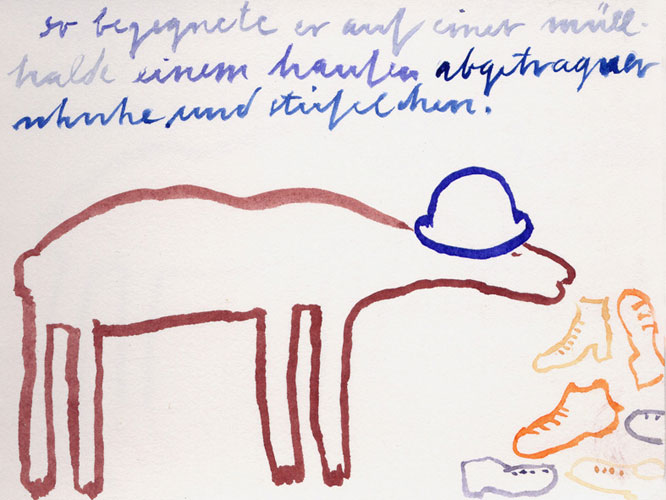 so begegnete er auf einer müll-
halde einem haufen abgetragner
schuhe und stiefelchen.